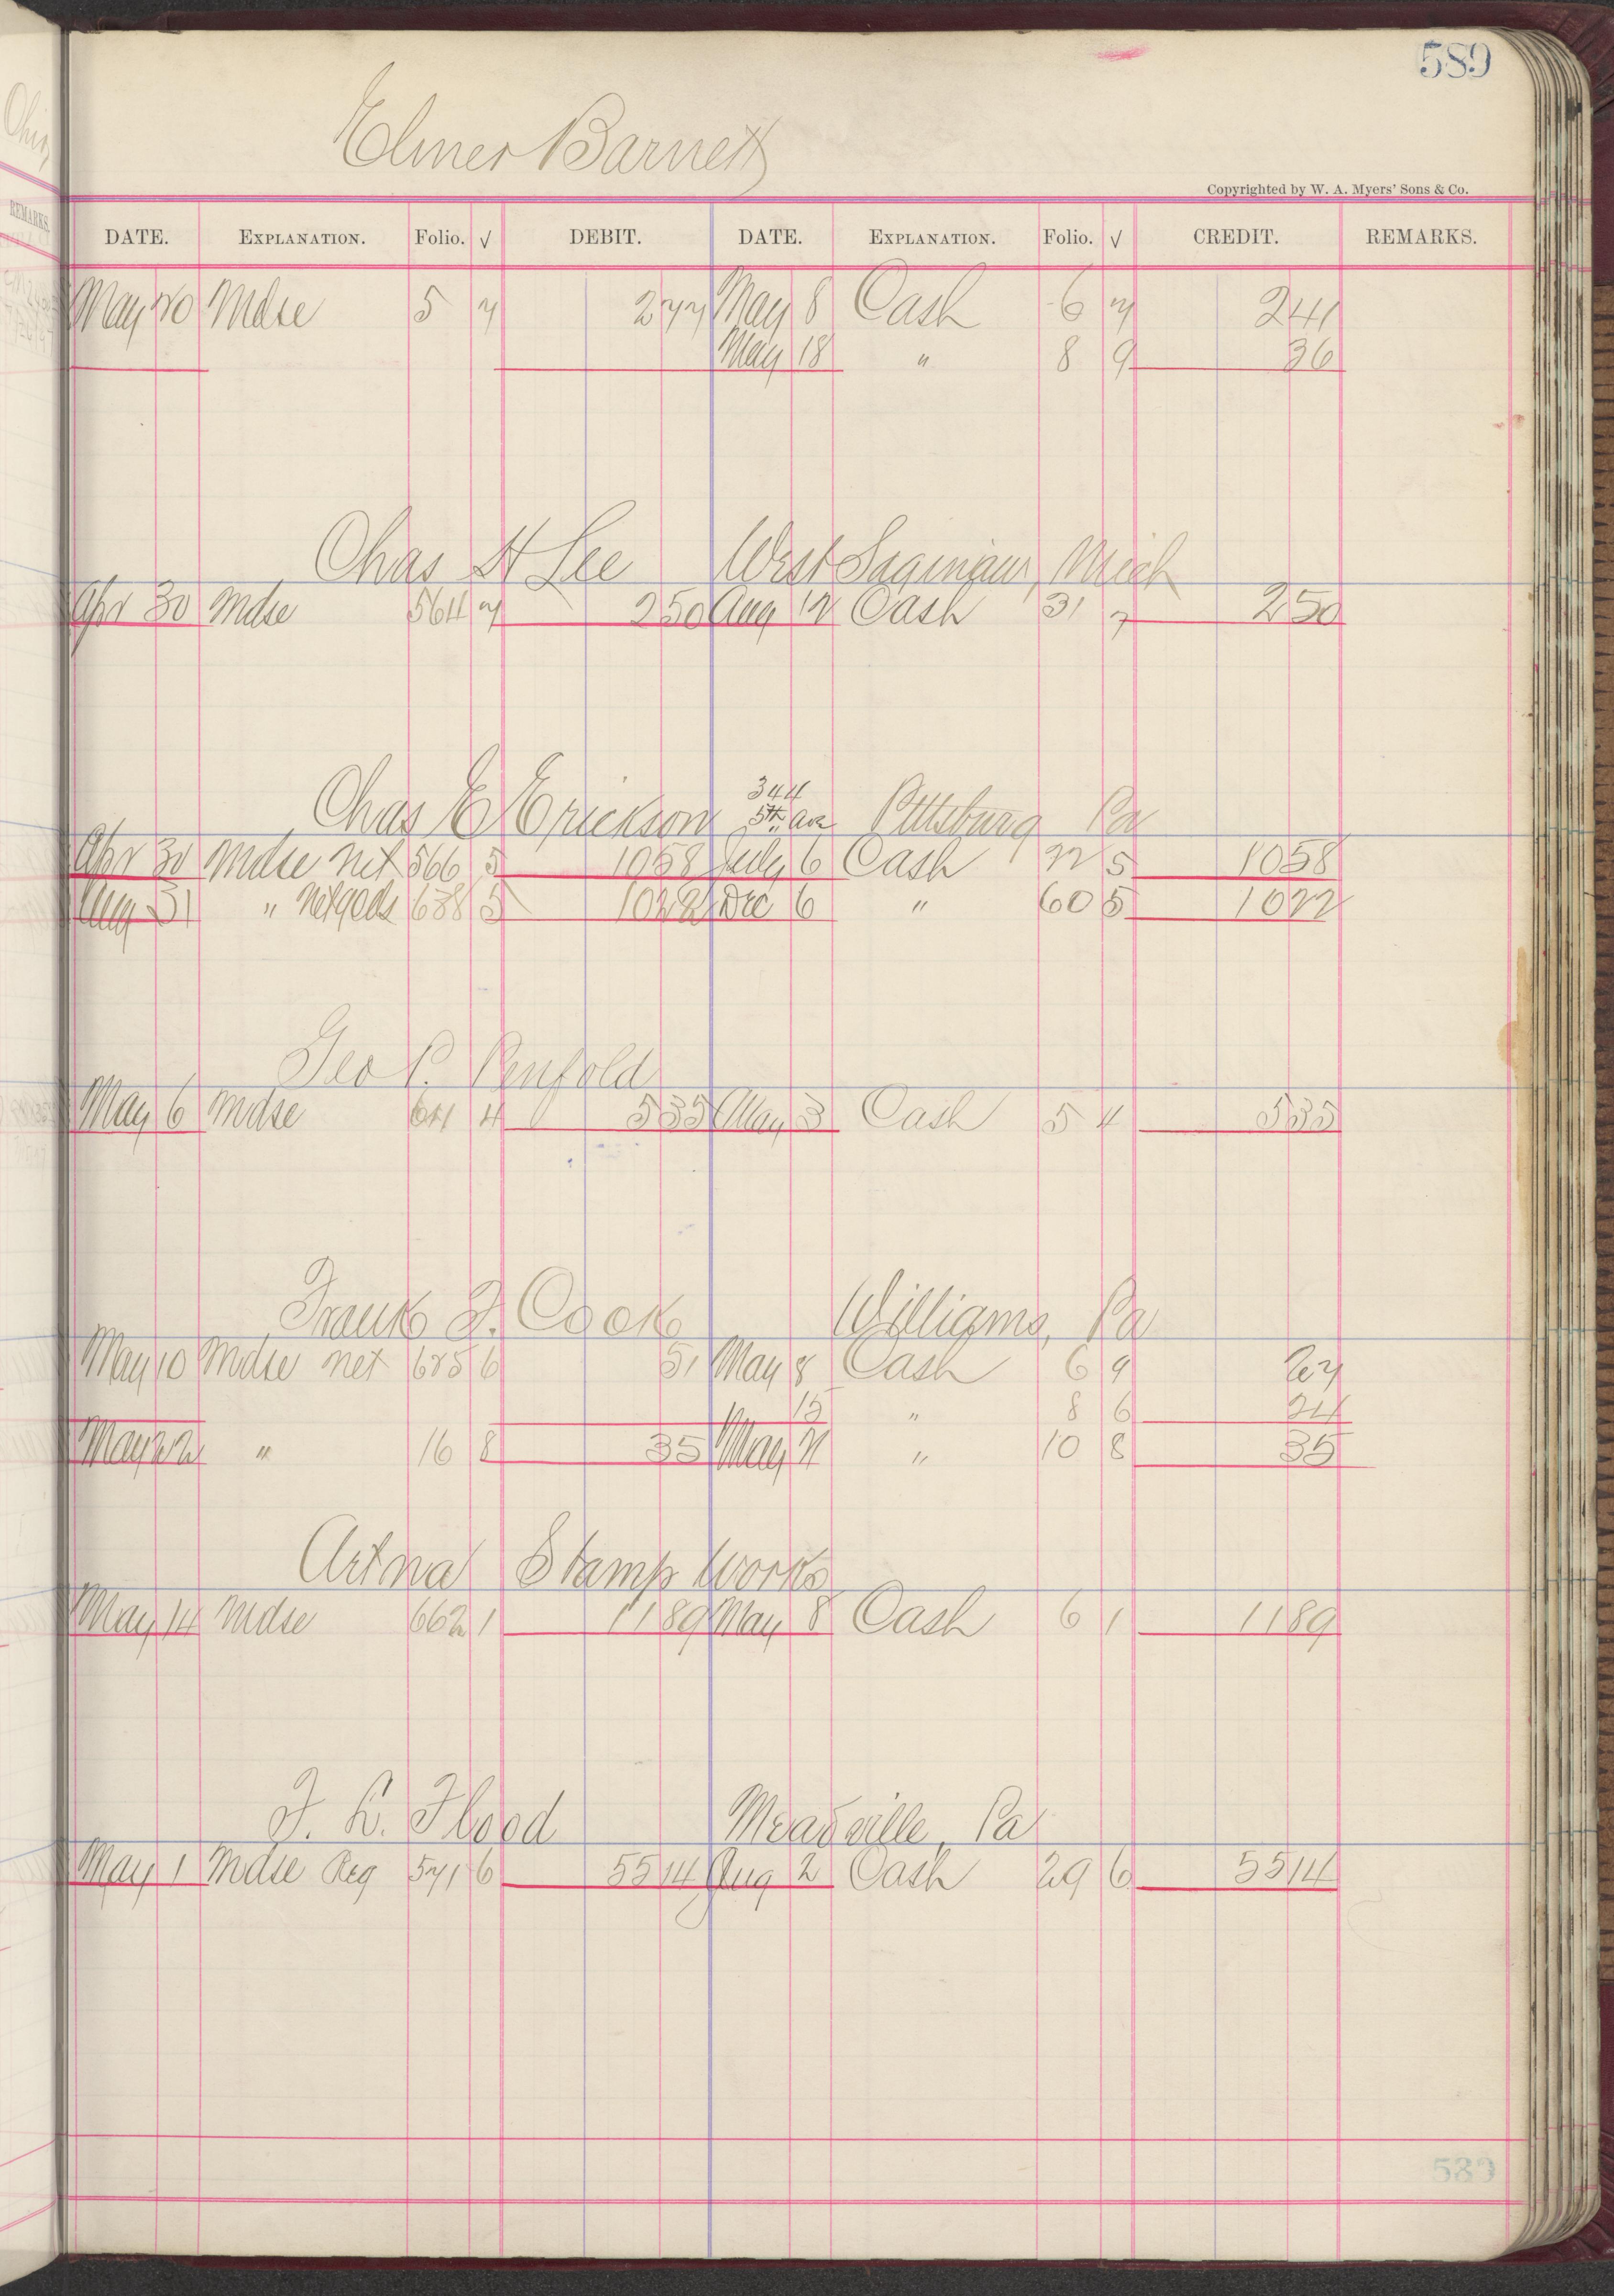 589
Elmer Barnett
Copyrighted by W. A. Myers' Sons & Co.
DATE. EXPLANATION. Folio. √ DEBIT. DATE. EXPLANATION. Folio. √ CREDIT. REMARKS.
May 20 Mdse 5 7 277 May 8 Cash 6 7 241
May 18 " 8 9 36
Chas H Lee West Saginaw, Mich
Apr 30 Mdse 564 7 250 Aug 12 Cash 31 7 250
Chas E Erickson 344 5th Ave Pittsburg Pa
Apr 30 Mdse net 566 5 1058 July 6 Cash 22 5 1058
Aug 31 " Netgods 638 5 1022 Dec 6 " 60 5 1022
Geo P. Penfold
May 6 Mdse 641 4 535 May 3 Cash 5 4 535
Frank J. Cook Williams, Pa
May 10 Mdse net 685 6 51 May 8 Cash 6 9 27
15 " 8 6 24
May 22 " 16 8 35 May 21 " 10 8 35
Aetna Stamp Works
May 14 Mdse 662 1 1189 May 8 Cash 6 1 1189
F. L. Flood Meadville, Pa
May 1 Mdse Reg 571 6 5514 Aug 2 Cash 29 6 5514
589